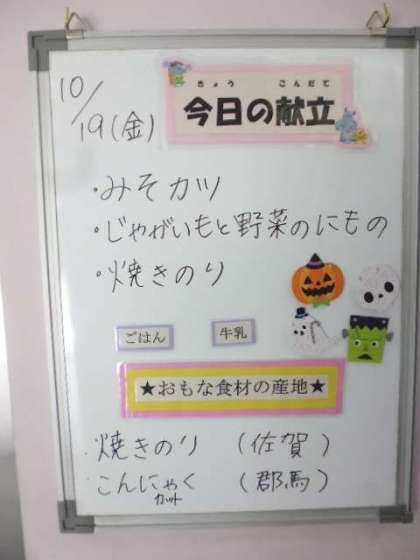 10/19(金)
きょう こんだて
今日の献立
・みそカツ
・じゃがいもと野菜のにもの
・焼きのり
ごはん 牛乳
★おもな食材の産地★
・焼きのり (佐賀)
こんにゃく (郡馬)
カット